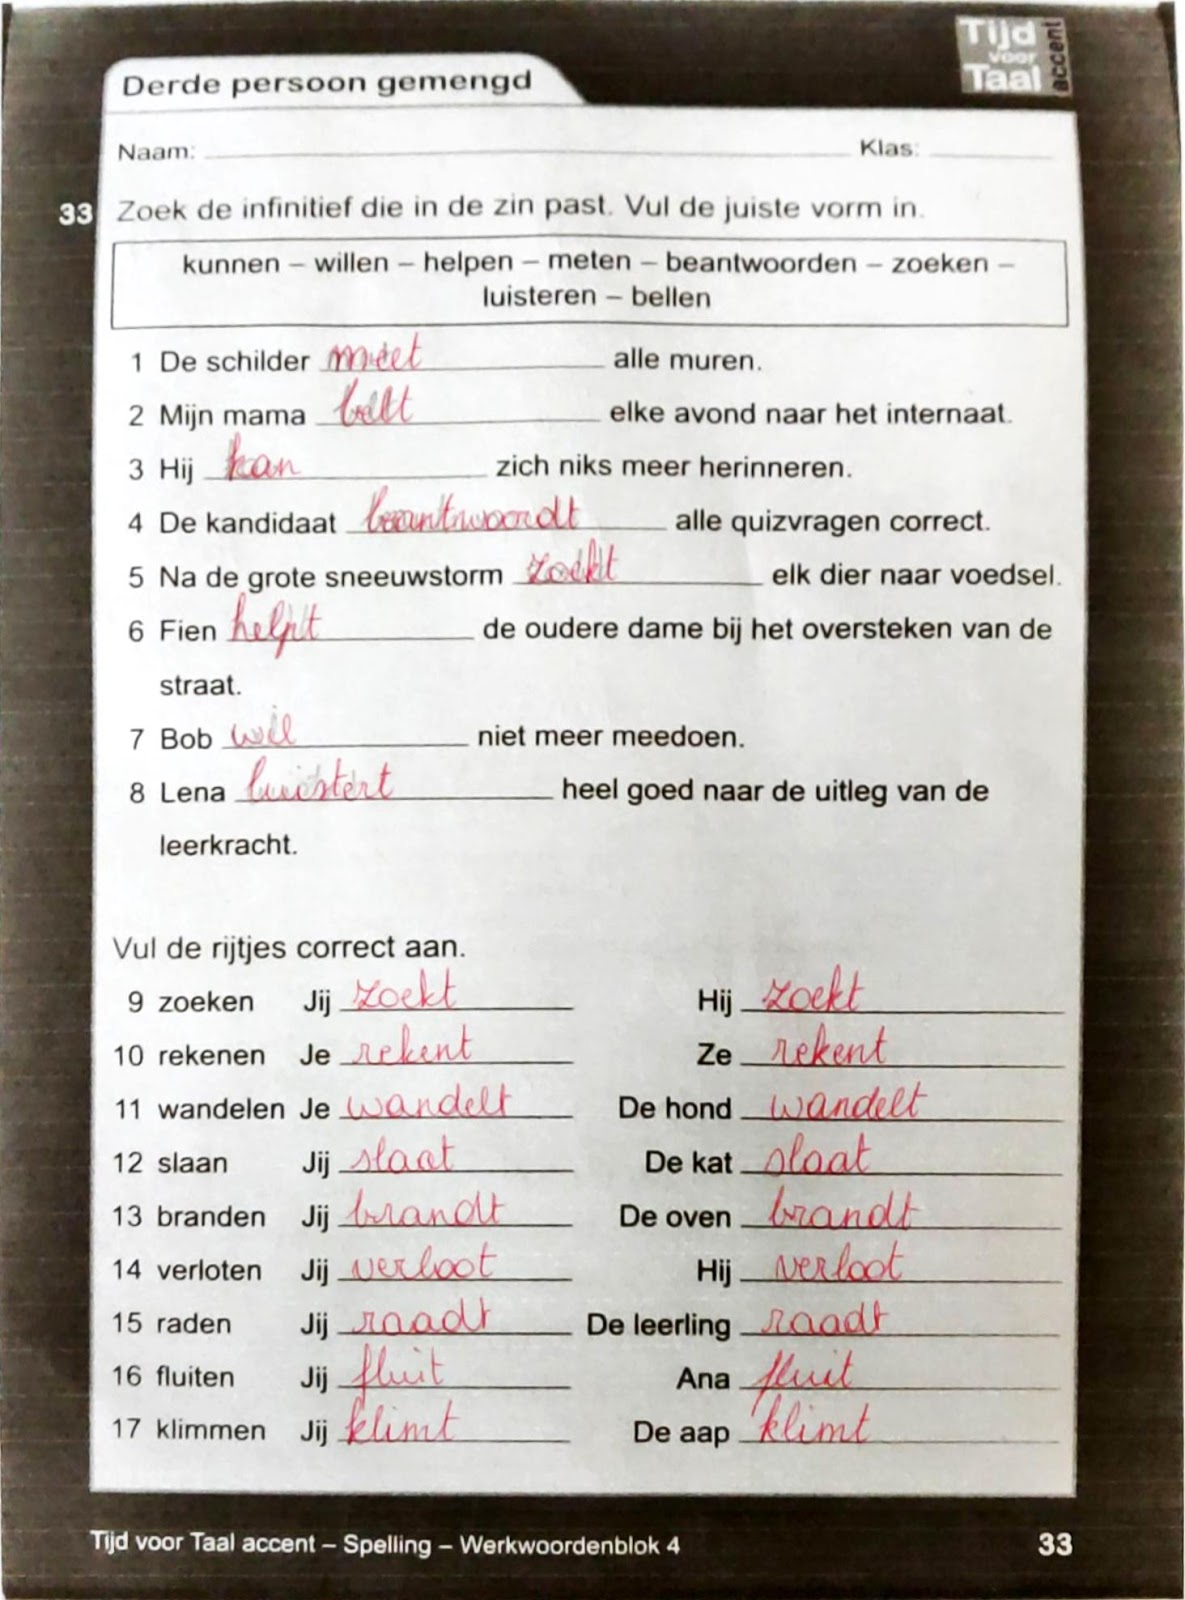 Tijd
voor
Taal
accent
Derde persoon gemengd
Naam: Klas:
33 Zoek de infinitief die in de zin past. Vul de juiste vorm in.
kunnen – willen – helpen – meten – beantwoorden – zoeken –
luisteren – bellen
1 De schilder meet alle muren.
2 Mijn mama belt elke avond naar het internaat.
3 Hij kan zich niks meer herinneren.
4 De kandidaat beantwoordt alle quizvragen correct.
5 Na de grote sneeuwstorm zoekt elk dier naar voedsel.
6 Fien helpt de oudere dame bij het oversteken van de
straat.
7 Bob wil niet meer meedoen.
8 Lena luistert heel goed naar de uitleg van de
leerkracht.
Vul de rijtjes correct aan.
9 zoeken Jij zoekt Hij zoekt
10 rekenen Je rekent Ze rekent
11 wandelen Je wandelt De hond wandelt
12 slaan Jij slaat De kat slaat
13 branden Jij brandt De oven brandt
14 verloten Jij verloot Hij verloot
15 raden Jij raadt De leerling raadt
16 fluiten Jij fluit Ana fluit
17 klimmen Jij klimt De aap klimt
Tijd voor Taal accent – Spelling – Werkwoordenblok 4 33